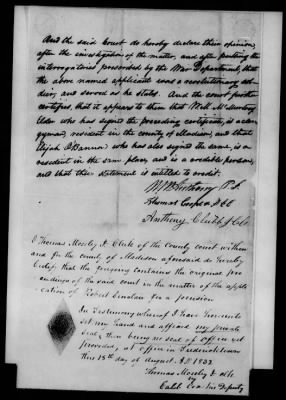 And the said Court do hereby declare their opinion,
after the investigation of the matter, and after putting the
interrogatories prescribed by the War Department, that
the above named applicant was a revolutionary sol-
dier, and served as he states. And the court further
certifies, that it appears to them that Will McMurtry
Elder who has signed the preceding certificate, is a cler-
gyman, resident in the county of Madison, and that
Elijah O'Bannon who has also signed the same, is a
resident in the same place, and is a credible person,
and that their statement is entitled to credit.
Anthony P. J.
Thomas Cooper J. C C
Anthony Clubb J C C
I Thomas Mosely Jr Clerk of the County court within
and for the county of Madison aforesaid do hereby
Certify that the foregoing contains the original pro-
ceedings of the said court in the matter of the appli-
cation of Robert for a pension
In Testimony whereof I have hereunto
set my hand and affixed my private
Seal, there being no seal of Office yet
provided, at office in Fredericktown
this 18th day of August AD 1832
Thomas Mosely Jr clk
by
Calib Cox his Deputy